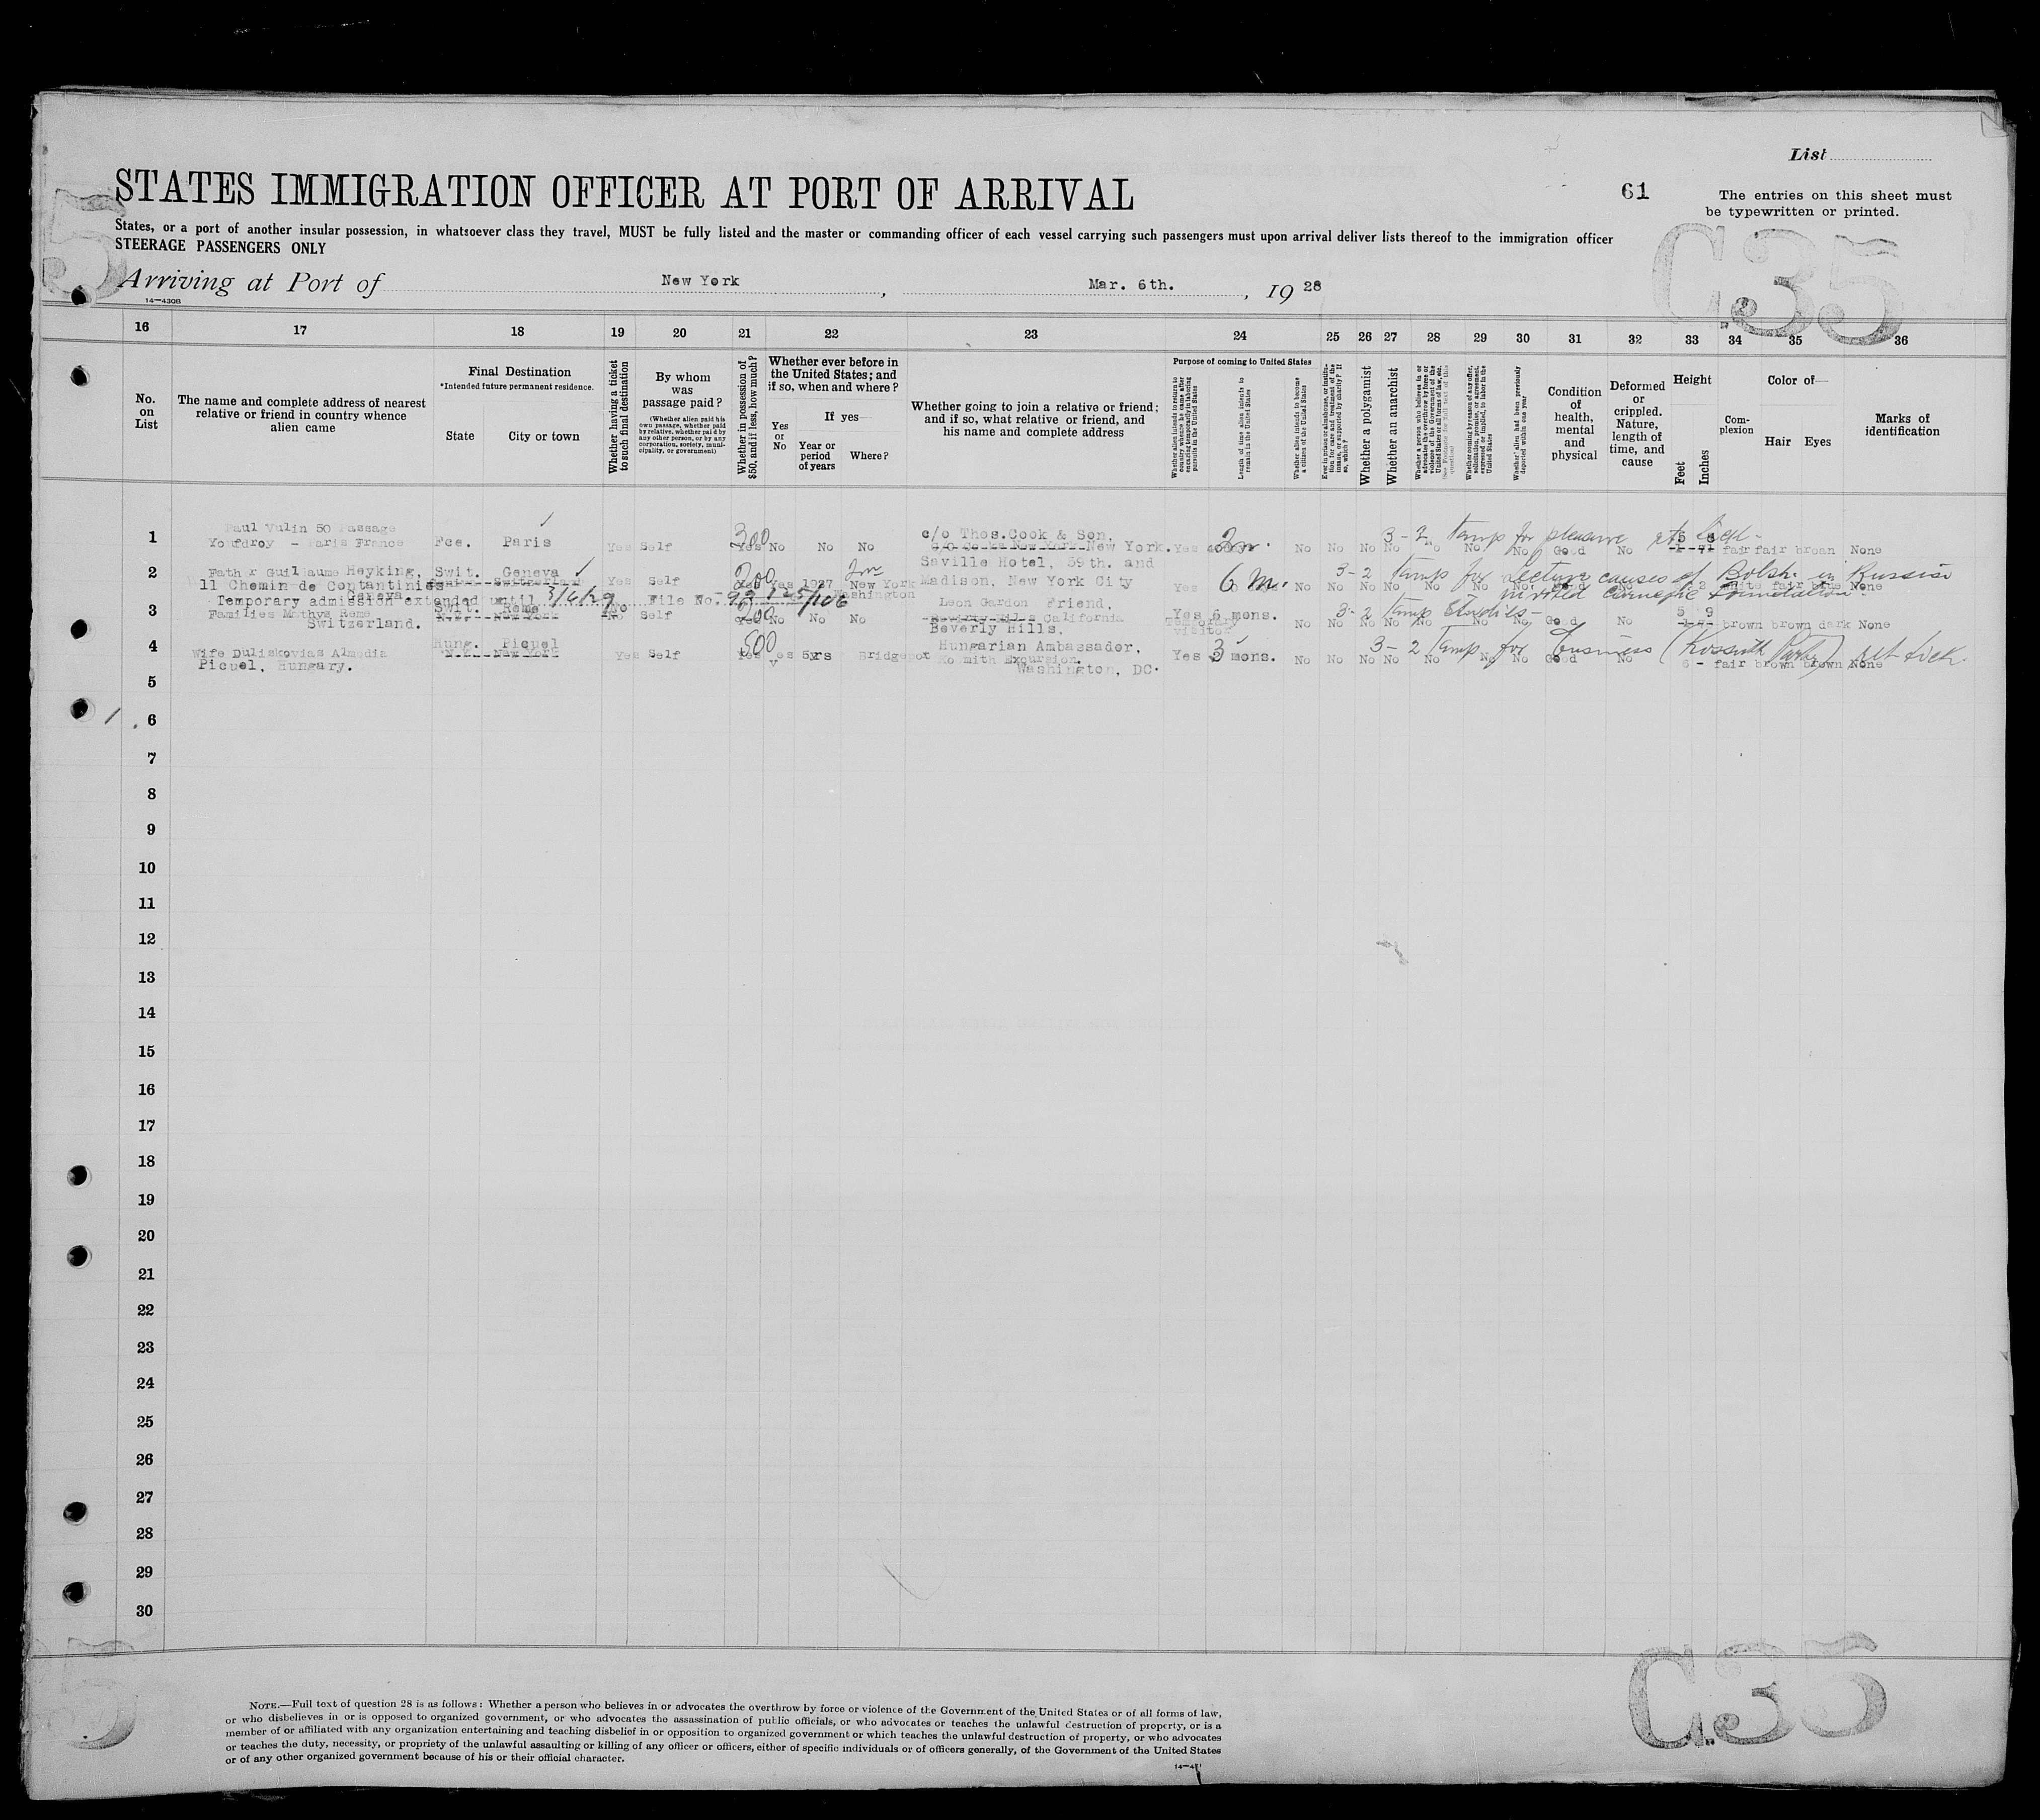 List
STATES IMMIGRATION OFFICER AT PORT OF ARRIVAL
61
The entries on this sheet must
be typewritten or printed.
States, or a port of another insular possession, in whatsoever class they travel, MUST be fully listed and the master or commanding officer of each vessel carrying such passengers must upon arrival deliver lists thereof to the immigration officer
STEERAGE PASSENGERS ONLY
C35
5
Arriving at Port of New York, Mar. 6th., 19 28
14—430B
16 17 18 19 20 21 22 23 24 25 26 27 28 29 30 31 32 33 34 35 36
No. on List
The name and complete address of nearest relative or friend in country whence alien came
Final Destination
*Intended future permanent residence.
State
City or town
Whether having a ticket to such final destination
By whom was passage paid?
(Whether alien paid his own passage, whether paid by relative, whether paid by any other person, or by any corporation, society, municipality, or government)
Whether in possession of $50, and if less, how much?
Whether ever before in the United States; and if so, when and where?
Yes or No
If yes—
Year or period of years
Where?
Whether going to join a relative or friend; and if so, what relative or friend, and his name and complete address
Purpose of coming to United States
Whether alien intends to return to country whence he came after engaging temporarily in laboring pursuits in the United States
Length of time alien intends to remain in the United States
Whether alien intends to become a citizen of the United States
Ever in prison or almshouse, or institution for care and treatment of the insane, or supported by charity? If so, which?
Whether a polygamist
Whether an anarchist
Whether a person who believes in or advocates the overthrow by force or violence of the Government of the United States or all forms of law, etc. (See Footnote for full text of this question)
Whether coming by reason of any offer, solicitation, promise, or agreement, expressed or implied, to labor in the United States
Whether alien had been previously deported within one year
Condition of health, mental and physical
Deformed or crippled. Nature, length of time, and cause
Height
Feet
Inches
Complexion
Color of—
Hair
Eyes
Marks of identification
1 Paul Vulin 50 Passage
Youfdroy - Paris France Fce. Paris Yes Self 300 Yes No No No
c/o Thos. Cook & Son,
New York. Yes 2m. No No No No No No No Good No 5 fair fair brown None
3-2 Temp for pleasure
2 Father Guillaume Heyking, Swit. Geneva
11 Chemin de Contantinies Geneva Yes Self 200 Yes Yes 1927 2m New York Washington
Saville Hotel, 59th. and
Madison, New York City Yes 6 m. No No No No No No No Good No white fair blue None
3-2 Temp for Lecture causes of Bolsh. in Russia
invited Carnegie Foundation
Temporary admission extended until 3/6/29 File No.
3 Families Mathys Reme
Switzerland. Swit. Reme No Self 200 Yes No No No
Leon Gardon Friend,
California
Beverly Hills, Yes 6 mons. Temporary visitor No No No No No No No Good No 5 9 brown brown dark None
3-2 Temp Studies-
4 Wife Duliskovias Almedia
Picuel, Hungary. Hung. Picuel N.Y. New York Yes Self 500 Yes Yes 5yrs Bridgepot
Hungarian Ambassador,
Excursion
Washington, DC. Yes 3 mons. No No No No No No No Good No 6 - fair brown brown None
3-2 Temp for business (Kossuth Party) ret tick.
5
6
7
8
9
10
11
12
13
14
15
16
17
18
19
20
21
22
23
24
25
26
27
28
29
30
C35
5
NOTE.—Full text of question 28 is as follows: Whether a person who believes in or advocates the overthrow by force or violence of the Government of the United States or of all forms of law,
or who disbelieves in or is opposed to organized government, or who advocates the assassination of public officials, or who advocates or teaches the unlawful destruction of property, or is a
member of or affiliated with any organization entertaining and teaching disbelief in or opposition to organized government or which teaches the unlawful destruction of property, or who advocates
or teaches the duty, necessity, or propriety of the unlawful assaulting or killing of any officer or officers, either of specific individuals or of officers generally, of the Government of the United States
or of any other organized government because of his or their official character.